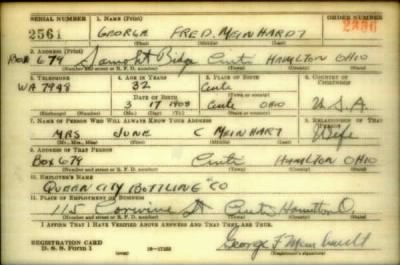 SERIAL NUMBER 1. NAME (Print) ORDER NUMBER
2561 GEORGE FRED. MEINHARDT
(First) (Middle) (Last)
2. ADDRESS (Print)
BOX 679 Ridge Cinti HAMILTON OHIO
(Number and street or R. F. D. number) (Town) (County) (State)
3. TELEPHONE 4. AGE IN YEARS 5. PLACE OF BIRTH 6. COUNTRY OF CITIZENSHIP
WA 7998 32 Cinti
DATE OF BIRTH (Town or county)
3 17 1908 Cinti OHIO U.S.A.
(Exchange) (Number) (Mo.) (Day) (Yr.) (State or country)
7. NAME OF PERSON WHO WILL ALWAYS KNOW YOUR ADDRESS 8. RELATIONSHIP OF THAT PERSON
MRS JUNE C MEINHART Wife
(Mr., Mrs., Miss) (First) (Middle) (Last)
9. ADDRESS OF THAT PERSON
BOX 679 Cinti HAMILTON OHIO
(Number and street or R. F. D. number) (Town) (County) (State)
10. EMPLOYER'S NAME
QUEEN CITY BOTTLING CO
11. PLACE OF EMPLOYMENT OR BUSINESS
115 Corwine St Cinti Hamilton O
(Number and street or R. F. D. number) (Town) (County) (State)
I AFFIRM THAT I HAVE VERIFIED ABOVE ANSWERS AND THAT THEY ARE TRUE.
REGISTRATION CARD
D. S. S. Form 1 George F Meinhardt
(over) (Registrant's signature)